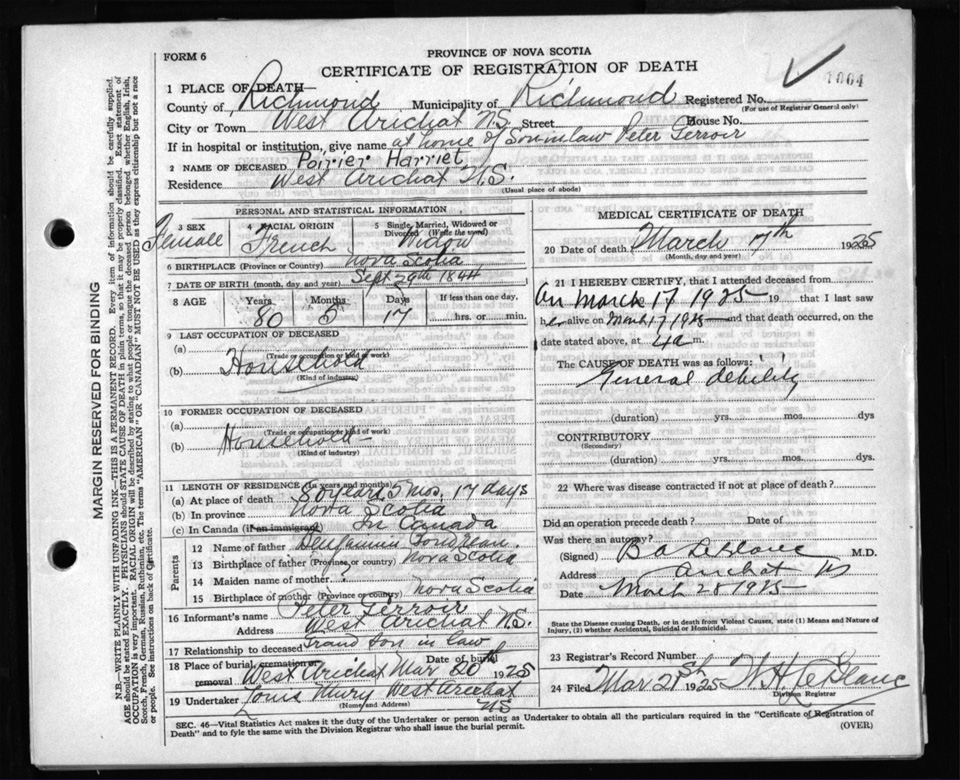 FORM 6
PROVINCE OF NOVA SCOTIA
CERTIFICATE OF REGISTRATION OF DEATH
1064
1 PLACE OF DEATH—
County of Richmond Municipality of Richmond Registered No.
(For use of Registrar General only)
City or Town West Arichat N.S. Street House No.
If in hospital or institution, give name at home of Son in law Peter Terroir
2 NAME OF DECEASED Poirier Harriet
Residence West Arichat N.S.
(Usual place of abode)
PERSONAL AND STATISTICAL INFORMATION
3 SEX Female
4 RACIAL ORIGIN French
5 Single, Married, Widowed or Divorced (Write the word) Widow
6 BIRTHPLACE (Province or Country) Nova Scotia
7 DATE OF BIRTH (month, day, and year) Sept 29th 1844
8 AGE Years Months Days If less than one day.
80 5 17 hrs. or min.
9 LAST OCCUPATION OF DECEASED
(a)
(Trade or occupation or kind of work)
(b) Household
(Kind of industry)
10 FORMER OCCUPATION OF DECEASED
(a)
(Trade or occupation or kind of work)
(b) Household
(Kind of industry)
11 LENGTH OF RESIDENCE (In years and months)
(a) At place of death 80 years 5 mos. 17 days
(b) In province Nova Scotia
(c) In Canada (if an immigrant) In Canada
Parents
12 Name of father Benjamin
13 Birthplace of father (Province or country) Nova Scotia
14 Maiden name of mother ?
15 Birthplace of mother (Province or country) Nova Scotia
16 Informant's name Peter Terroir
Address West Arichat N.S.
17 Relationship to deceased Grand Son in law
18 Place of burial, cremation or removal West Arichat Date of burial Mar 20th 1925
19 Undertaker Louis West Arichat NS
(Name and Address)
MEDICAL CERTIFICATE OF DEATH
20 Date of death March 17th 1925
(Month, day, and year)
21 I HEREBY CERTIFY, that I attended deceased from
on March 17 1925 19 that I last saw
her alive on March 17 1925 and that death occurred, on
date stated above, at 4 a m.
The CAUSE OF DEATH was as follows:
General debility
(duration) yrs. mos. dys
CONTRIBUTORY
(Secondary)
(duration) yrs. mos. dys.
22 Where was disease contracted if not at place of death?
Did an operation precede death? Date of
Was there an autopsy?
(Signed) B A LeBlanc M.D.
Address Arichat NS
Date March 28 1925
State the Disease causing Death, or in death from Violent Causes, state (1) Means and Nature of
Injury, (2) whether Accidental, Suicidal or Homicidal.
23 Registrar's Record Number
24 Filed Mar 21st 1925 W H LeBlanc
Division Registrar
SEC. 46—Vital Statistics Act makes it the duty of the Undertaker or person acting as Undertaker to obtain all the particulars required in the "Certificate of Registration of
Death" and to fyle the same with the Division Registrar who shall issue the burial permit. (OVER)
MARGIN RESERVED FOR BINDING
N.B.—WRITE PLAINLY WITH UNFADING INK—THIS IS A PERMANENT RECORD. Every item of information should be carefully supplied.
AGE should be stated EXACTLY. PHYSICIANS should STATE CAUSE OF DEATH in plain terms, so that it may be properly classified. Exact statement of
OCCUPATION is very important. RACIAL ORIGIN will be described by stating to what people or tongue the deceased person belonged whether English, Irish,
Scotch, French, German, Russian, Ruthenian, etc. The terms "AMERICAN" OR "CANADIAN" MUST NOT BE USED as they express citizenship but not a race
or people. See instructions on back of Certificate.